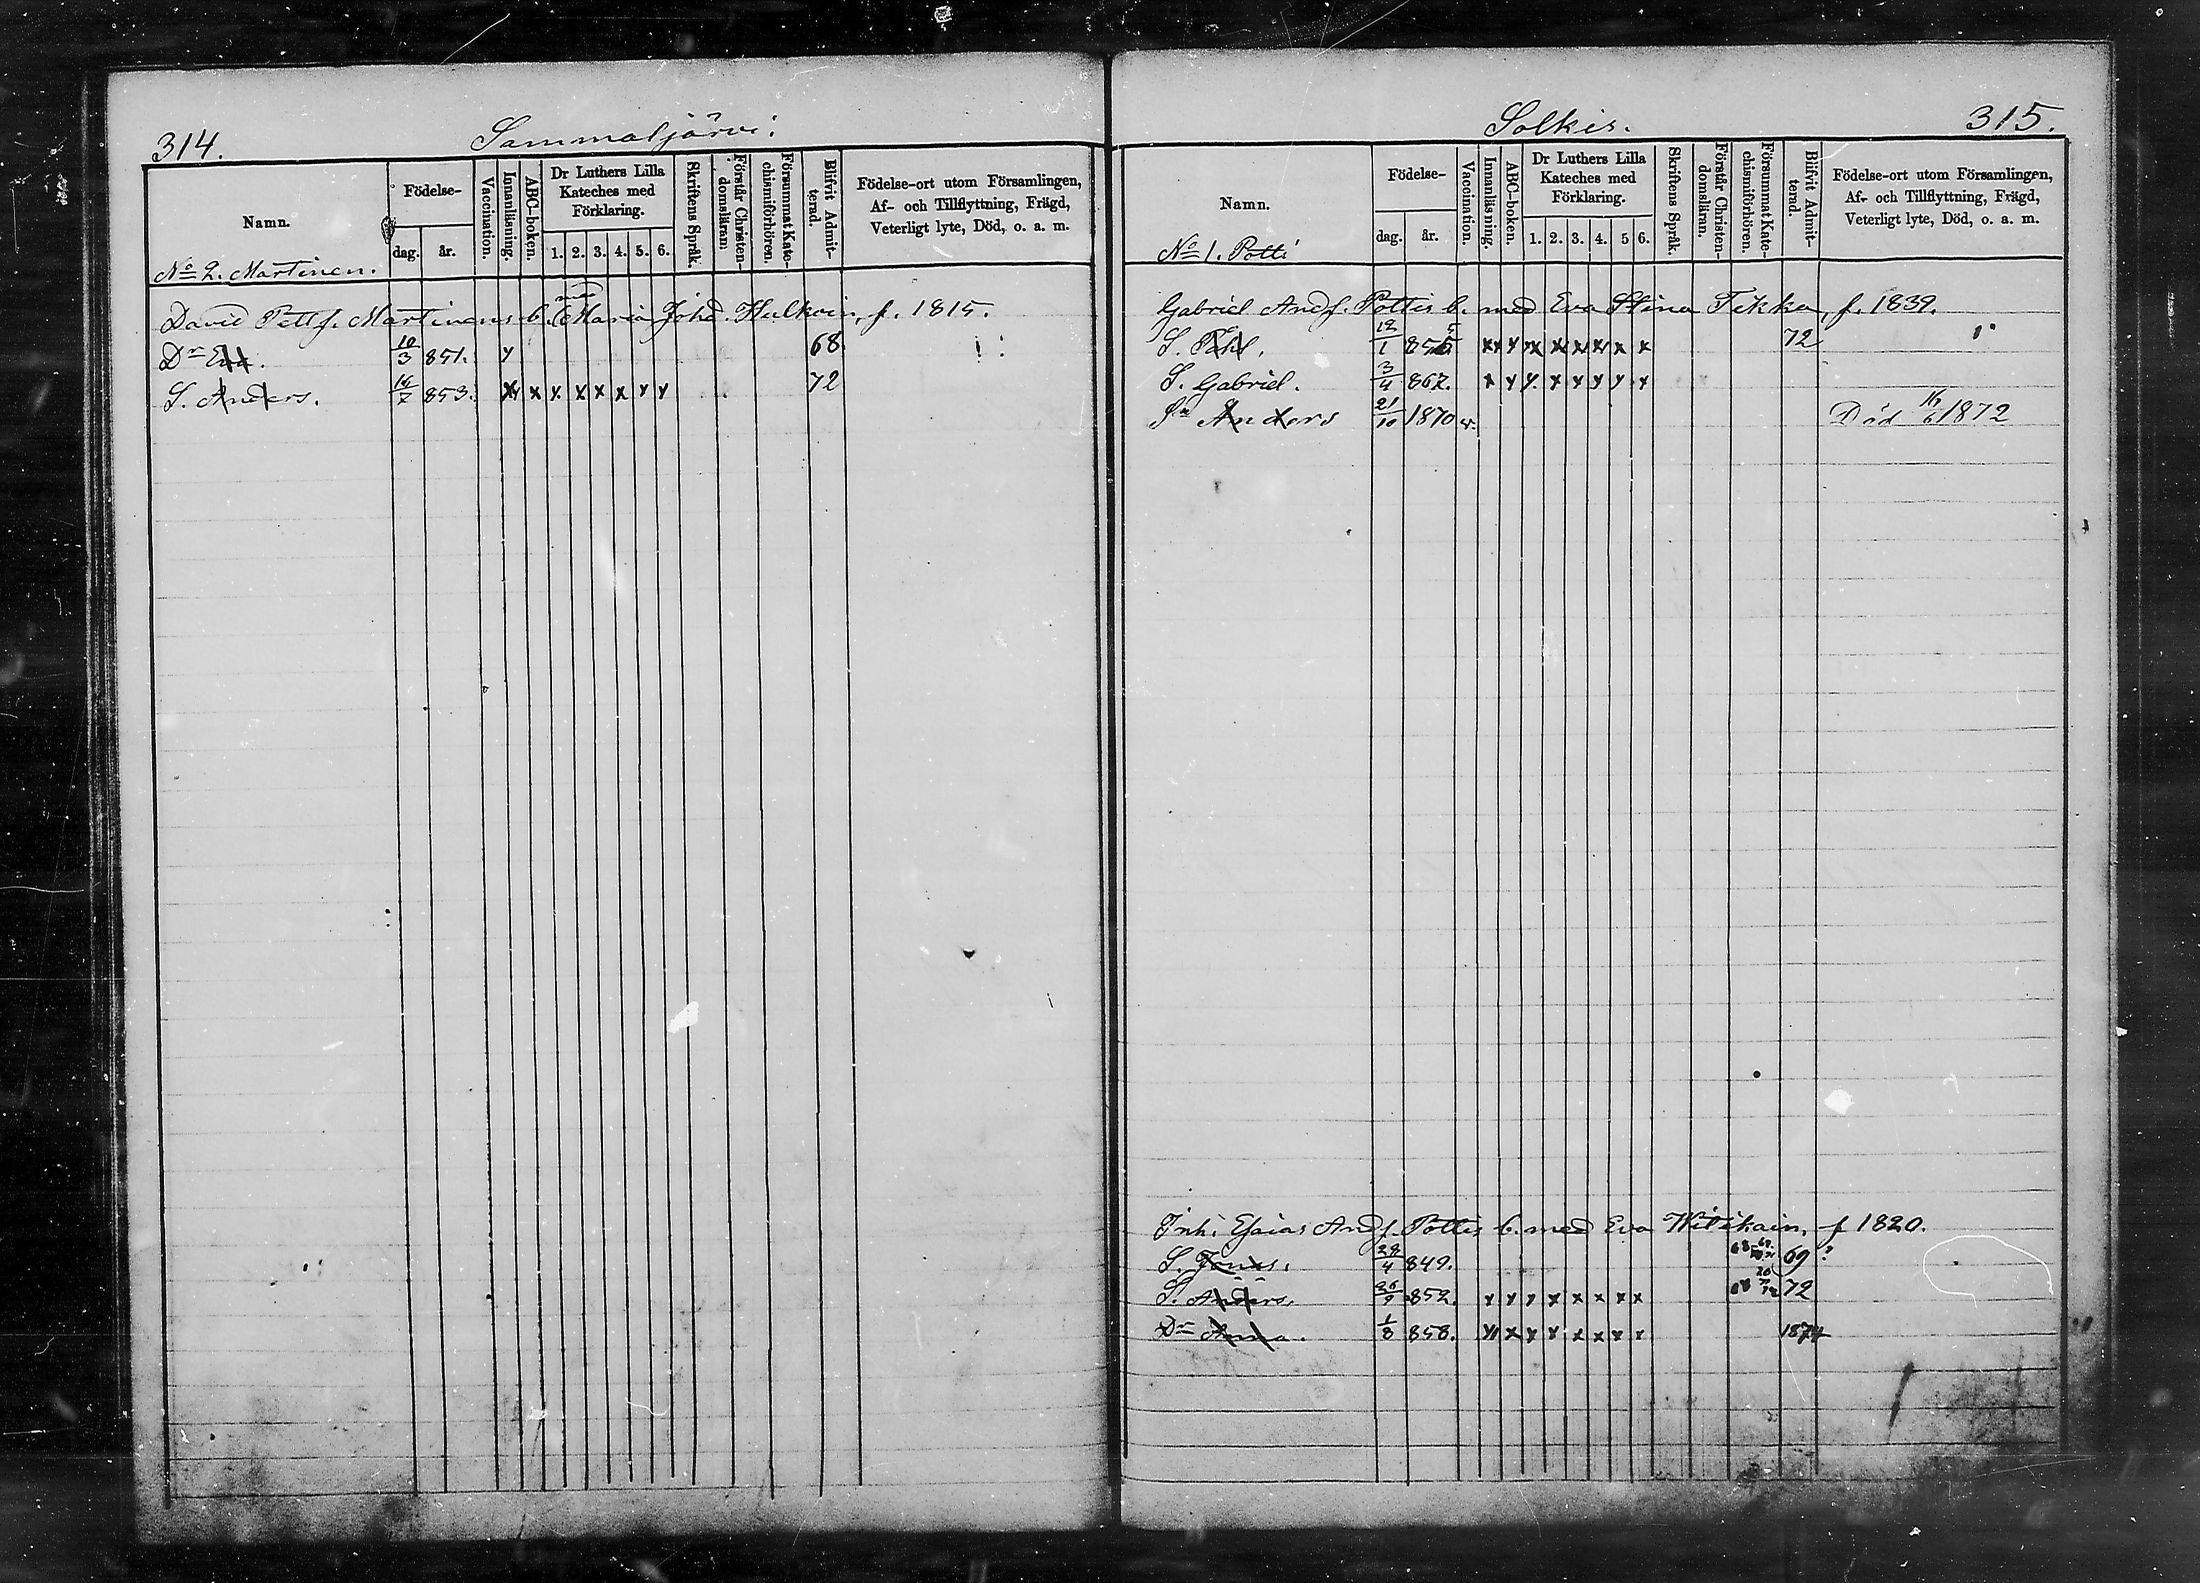 314.
Sammaljärvi.
Namn.
Födelse-
dag.
år.
Vaccination.
Innanläsning.
ABC-boken.
Dr Luthers Lilla
Kateches med
Förklaring.
1. 2. 3. 4. 5. 6.
Skriftens Språk.
Förstår Christen-
domsläran.
Försummat Kate-
chismiförhören.
Blifvit Admit-
terad.
Födelse-ort utom Församlingen,
Af- och Tillflyttning, Frägd,
Veterligt lyte, Död, o. a. m.
No 2. Martinen.
David Pettf. Martinens b. med Maria Johd. Hulkoin, f. 1815.
Dr Eva. 10/3 851. x 68
S. Anders. 16/7 853. x x x x x x x x 72
Solkis.
315.
Namn.
Födelse-
dag.
år.
Vaccination.
Innanläsning.
ABC-boken.
Dr Luthers Lilla
Kateches med
Förklaring.
1. 2. 3. 4. 5 6.
Skriftens Språk.
Förstår Christen-
domsläran.
Försummat Kate-
chismiförhören.
Blifvit Admit-
terad.
Födelse-ort utom Församlingen,
Af- och Tillflyttning, Frägd,
Veterligt lyte, Död, o. a. m.
No 1. Potti
Gabriel Andf. Pottis b. med Eva Stina Tikka, f. 1839.
S. 12/1 855 x x x x x x x x 72
S. Gabriel. 3/4 862. x x x x x x x x
Sn Anders 21/10 1870 v. Död 16/6 1872
Inh. Esaias Andf. Pottis b. med Eva f 1820.
S. Jonas. 28/4 849. 69 ?
S. Anders. 26/9 852. x x x x x x x x 72
Dr Anna. 1/8 858. x x x x x x x x 1874